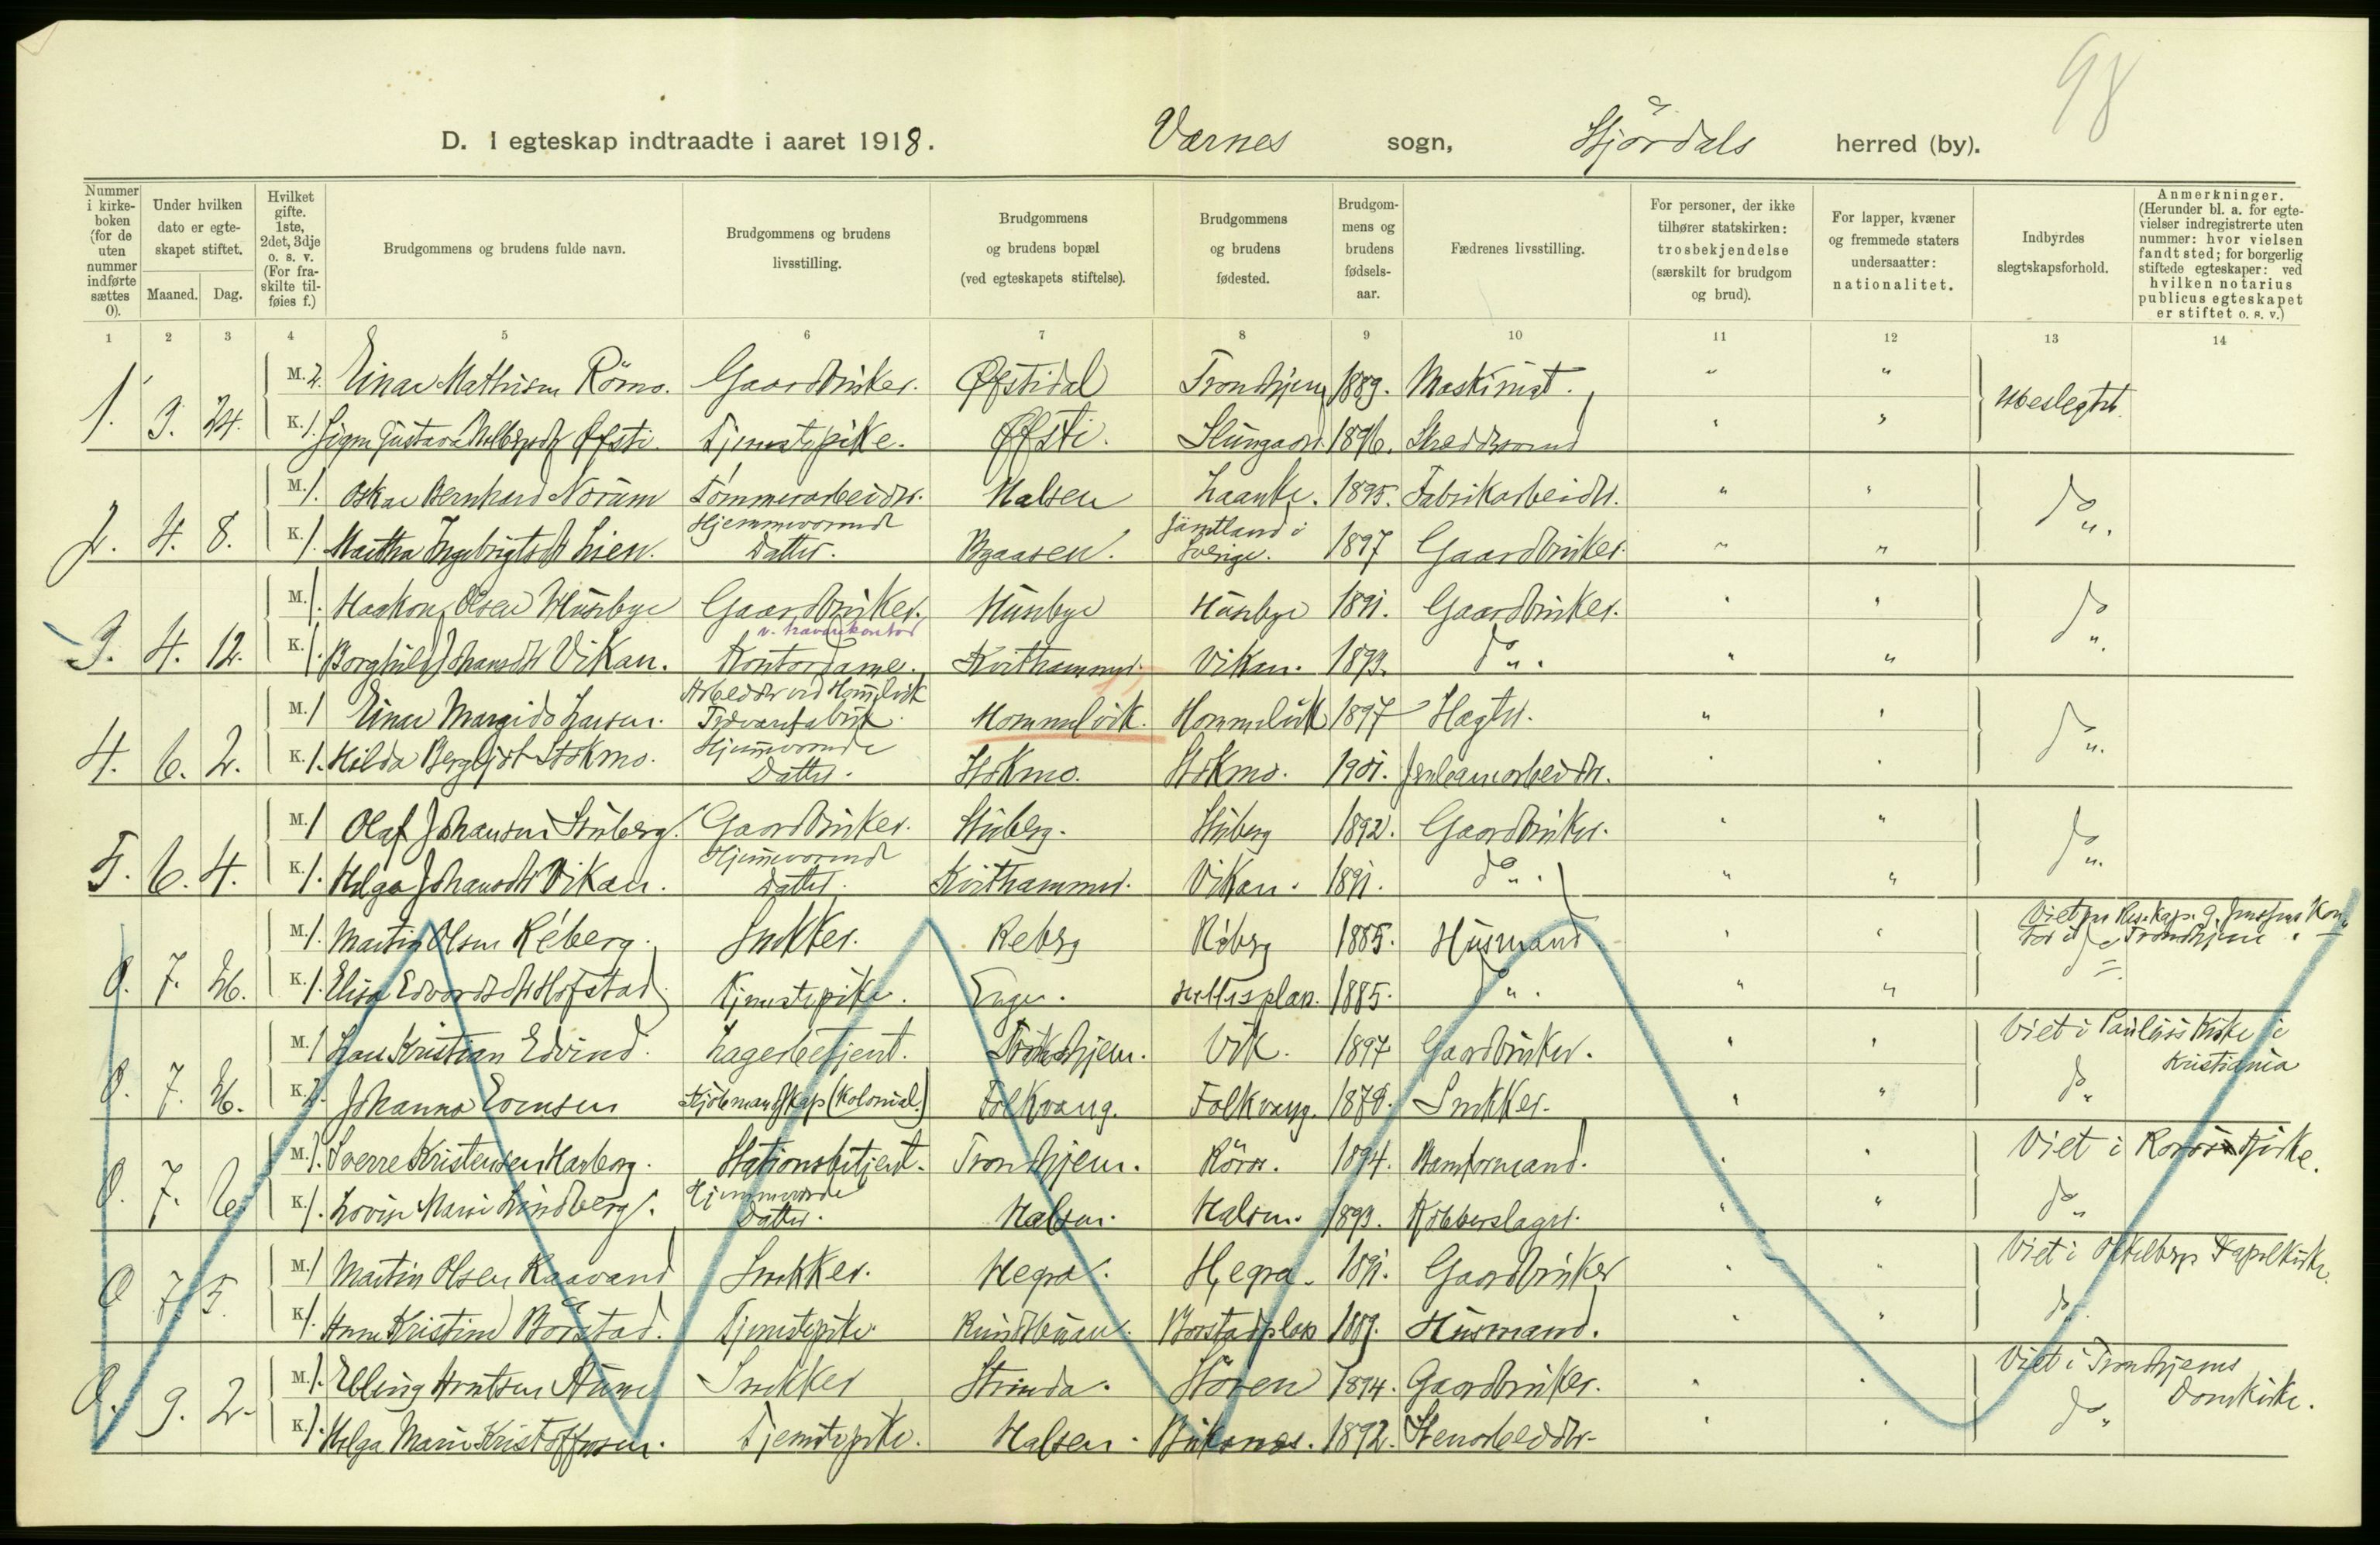 98
D. I egteskap indtraadte i aaret 1918. Værnes sogn, Stjørdals herred (by).
Nummer i kirke-boken (for de uten nummer indførte sættes 0).
Under hvilken dato er egte-skapet stiftet.
Maaned. Dag.
Hvilket gifte. 1ste, 2det, 3dje o. s. v. (For fra-skilte til-føies f.)
Brudgommens og brudens fulde navn.
Brudgommens og brudens livsstilling.
Brudgommens og brudens bopæl (ved egteskapets stiftelse).
Brudgommens og brudens fødested.
Brudgom-mens og brudens fødsels-aar.
Fædrenes livsstilling.
For personer, der ikke tilhører statskirken: trosbekjendelse (særskilt for brudgom og brud).
For lapper, kvæner og fremmede staters undersaatter: nationalitet.
Indbyrdes slegtskapsforhold.
Anmerkninger. (Herunder bl. a. for egte-vielser indregistrerte uten nummer: hvor vielsen fandt sted; for borgerlig stiftede egteskaper: ved hvilken notarius publicus egteskapet er stiftet o. s. v.)
1 2 3 4 5 6 7 8 9 10 11 12 13 14
M. 2. Einar Mathisen Römo. Gaardbruker. Øfstidal Trondhjem 1889. Maskinist. " "
1. 3. 24. ubeslegtet.
K. 1. Gustava Øfsti. Tjenestepike. Øfsti. 1896. " "
M. 1. Oskar Bernhard Norum Tømmerarbeider. Halsen Laanke. 1895. Fabrikarbeider. " "
2. 4. 8. do.
K. 1. Martha Ingebrigtsdtr Lien. Hjemmeværende Datter. Byaasen. Jämtland i Sverige. 1897 Gaardbruker. " "
M. 1. Haakon Olsen Husbye Gaardbruker. Husbye Husbye 1891. Gaardbruker. " "
3. 4. 12. do.
K. 1. Borghild Johansdtr Vikan. Kontordame. Kvithammer. Vikan. 1893. do. " "
M. 1 Einar Margido Larsen. Arbeider ved Hommelvik Trævarefabrik. Hommelvik. Hommelvik 1897 " "
4. 6. 2. do.
K. 1. Hilda Bergljot Stokmo. Hjemmeværende Datter. Stokmo. Stokmo. 1901. " "
M. 1 Olaf Johansen Stuberg. Gaardbruker. Stuberg. Stuberg 1892. Gaardbruker. " "
5. 6. 4. do.
K. 1. Helga Johansdtr Vikan. Hjemmeværende Datter. Kvithammer. Vikan. 1891. do. " "
M. 1. Martin Olsen Réberg. Snekker. Reberg Réberg 1885. Husmand. " " Viet Kontor i Trondhjem.
0. 7. 26.
K. 1. Elisa Edvardsdtr Hofstad. Tjenestepike. Enge. 1885. do. " "
M. 1 Kristian Edvind. Lagerbetjent. Trondhjem. Vik. 1897 Gaardbruker. " " Viet i Paulus Kirke i Kristiania
0. 7. 26. do.
K. 2. Johanna Evensen (Kolonial.) Folkvang. Folkvang. 1878. Snekker. " "
M. 1. Sverre Kristensen Harborg. Stationsbetjent. Trondhjem. Röros. 1894. Banformand. " " Viet i Røros Kirke.
0. 7. 6. do.
K. 1. Lovise Marie Lindberg. Hjemmeværende Datter. Halsen. Halsen. 1893. Kobberslager. " "
M. 1 Martin Olsen Raavand Snekker. Hegra. Hegra. 1891. Gaardbruker " "
0 7. 5. Viet i Kapelkirke. do.
K. 1. Anne Kristine Børstad. Tjenestepike. Børstadplas 1889. Husmand. " "
M. 1. Elling Arntsen Aune Snekker Strinda. Stören 1894. Gaardbruker. " " Viet i Trondhjems Domkirke.
0. 9. 2. do.
K. 1. Helga Marie Kristoffersen. Tjenestepike. Halsen. Buksnes. 1892. Stenarbeider. " "